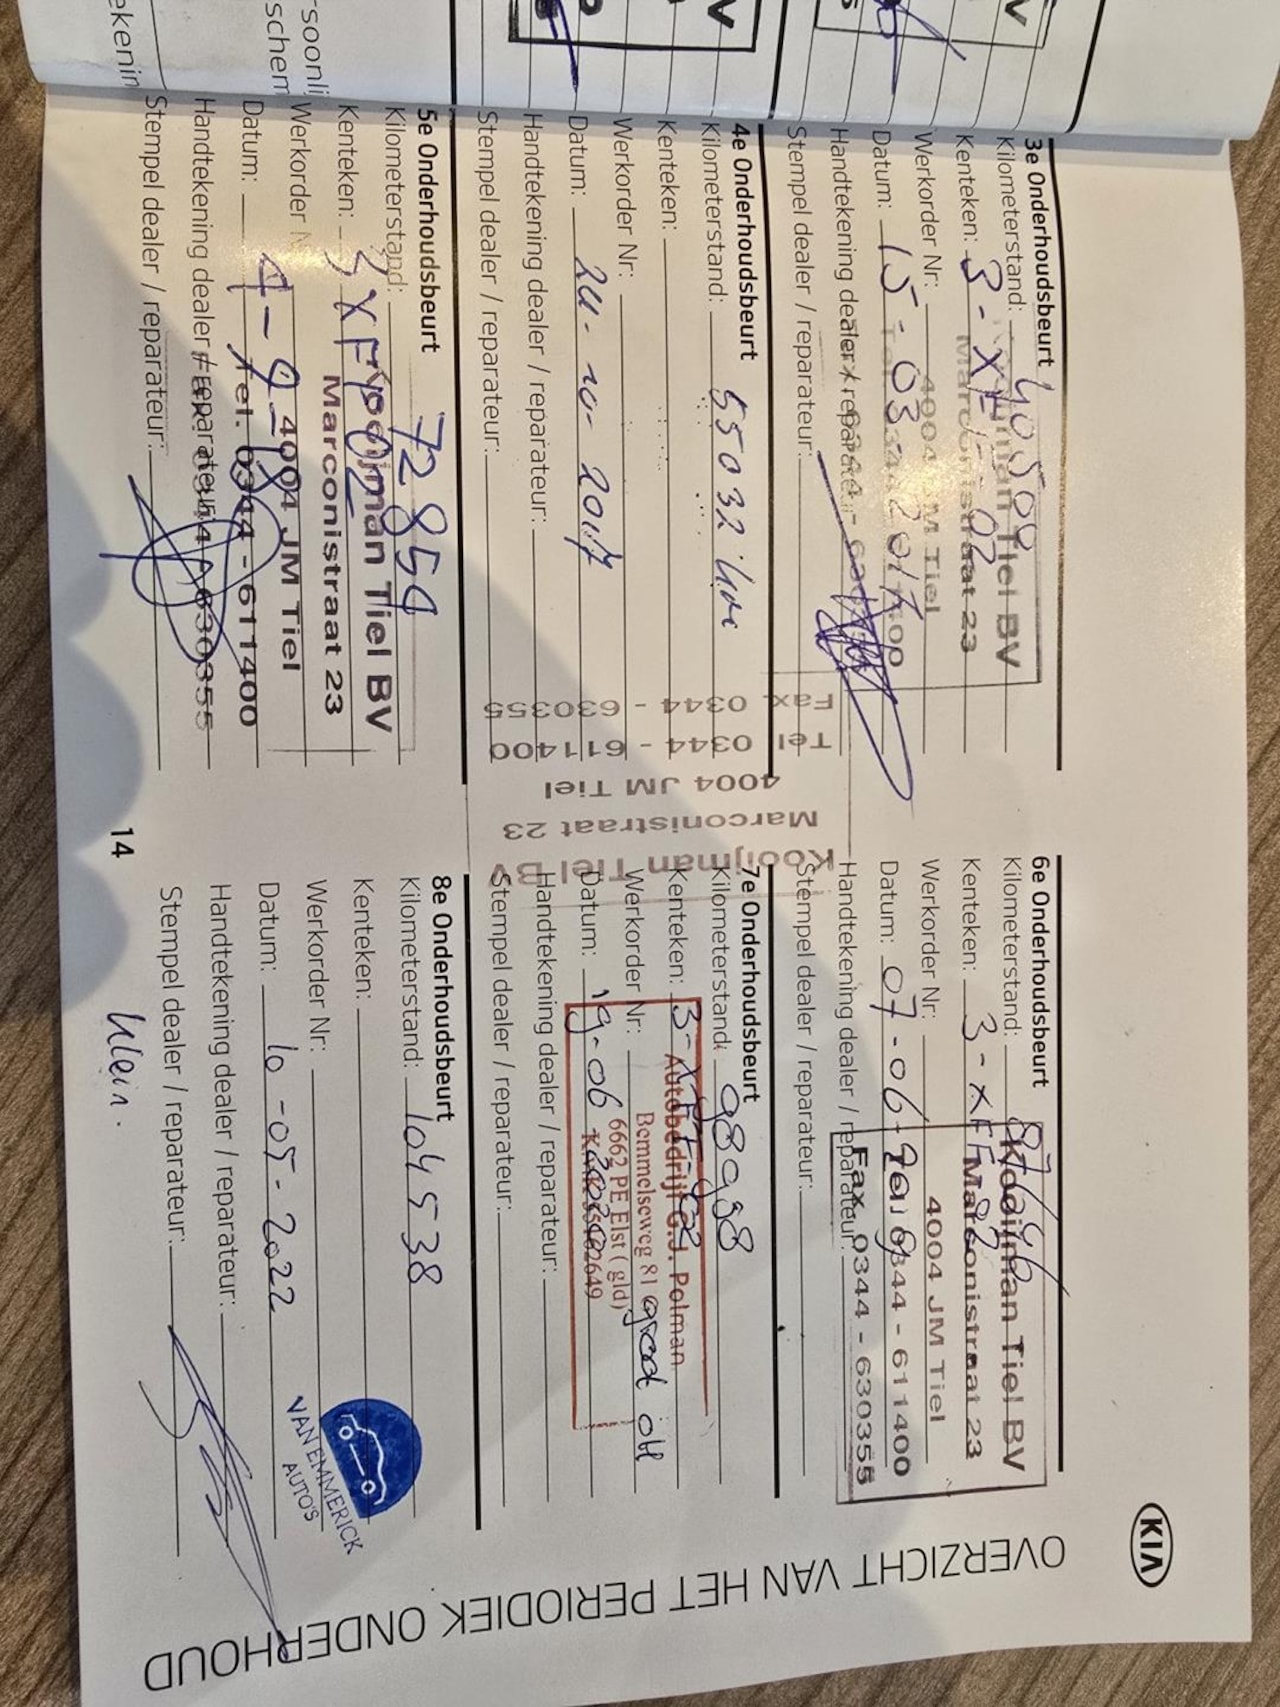 KIA
OVERZICHT VAN HET PERIODIEK ONDERHOUD
3e Onderhoudsbeurt
Kilometerstand: 40509
Kenteken: 3-XFF-02
Werkorder Nr:
Datum: 15-03-2017
Handtekening dealer / reparateur:
Stempel dealer / reparateur:
Kooijman Tiel BV
Marconistraat 23
4004 JM Tiel
4e Onderhoudsbeurt
Kilometerstand: 55032 km
Kenteken:
Werkorder Nr:
Datum: 24-10-2017
Handtekening dealer / reparateur:
Stempel dealer / reparateur:
Kooijman Tiel BV
Marconistraat 23
4004 JM Tiel
Tel 0344 - 611400
Fax 0344 - 630355
5e Onderhoudsbeurt
Kilometerstand: 72854
Kenteken: 3XFF02
Werkorder N
Datum: 4-9-18
Handtekening dealer / reparateur:
Stempel dealer / reparateur:
Kooijman Tiel BV
Marconistraat 23
4004 JM Tiel
Tel. 0344 - 611400
630355
14
6e Onderhoudsbeurt
Kilometerstand:
Kenteken: 3-XFF-02
Werkorder Nr:
Datum: 07-06-2019
Handtekening dealer / reparateur:
Stempel dealer / reparateur:
Kooijman Tiel BV
Marconistraat 23
4004 JM Tiel
Tel. 0344 - 611400
Fax 0344 - 630355
7e Onderhoudsbeurt
Kilometerstand: 98998
Kenteken: 3-XFF-02
Werkorder Nr:
Datum: 19-06-2020
Handtekening dealer / reparateur:
Stempel dealer / reparateur:
Autobedrijf G.J. Polman
Bemmelseweg 81
6662 PE Elst ( gld)
8e Onderhoudsbeurt
Kilometerstand: 104538
Kenteken:
Werkorder Nr:
Datum: 10-05-2022
Handtekening dealer / reparateur:
Stempel dealer / reparateur:
VAN EMMERICK
AUTO'S
klein.